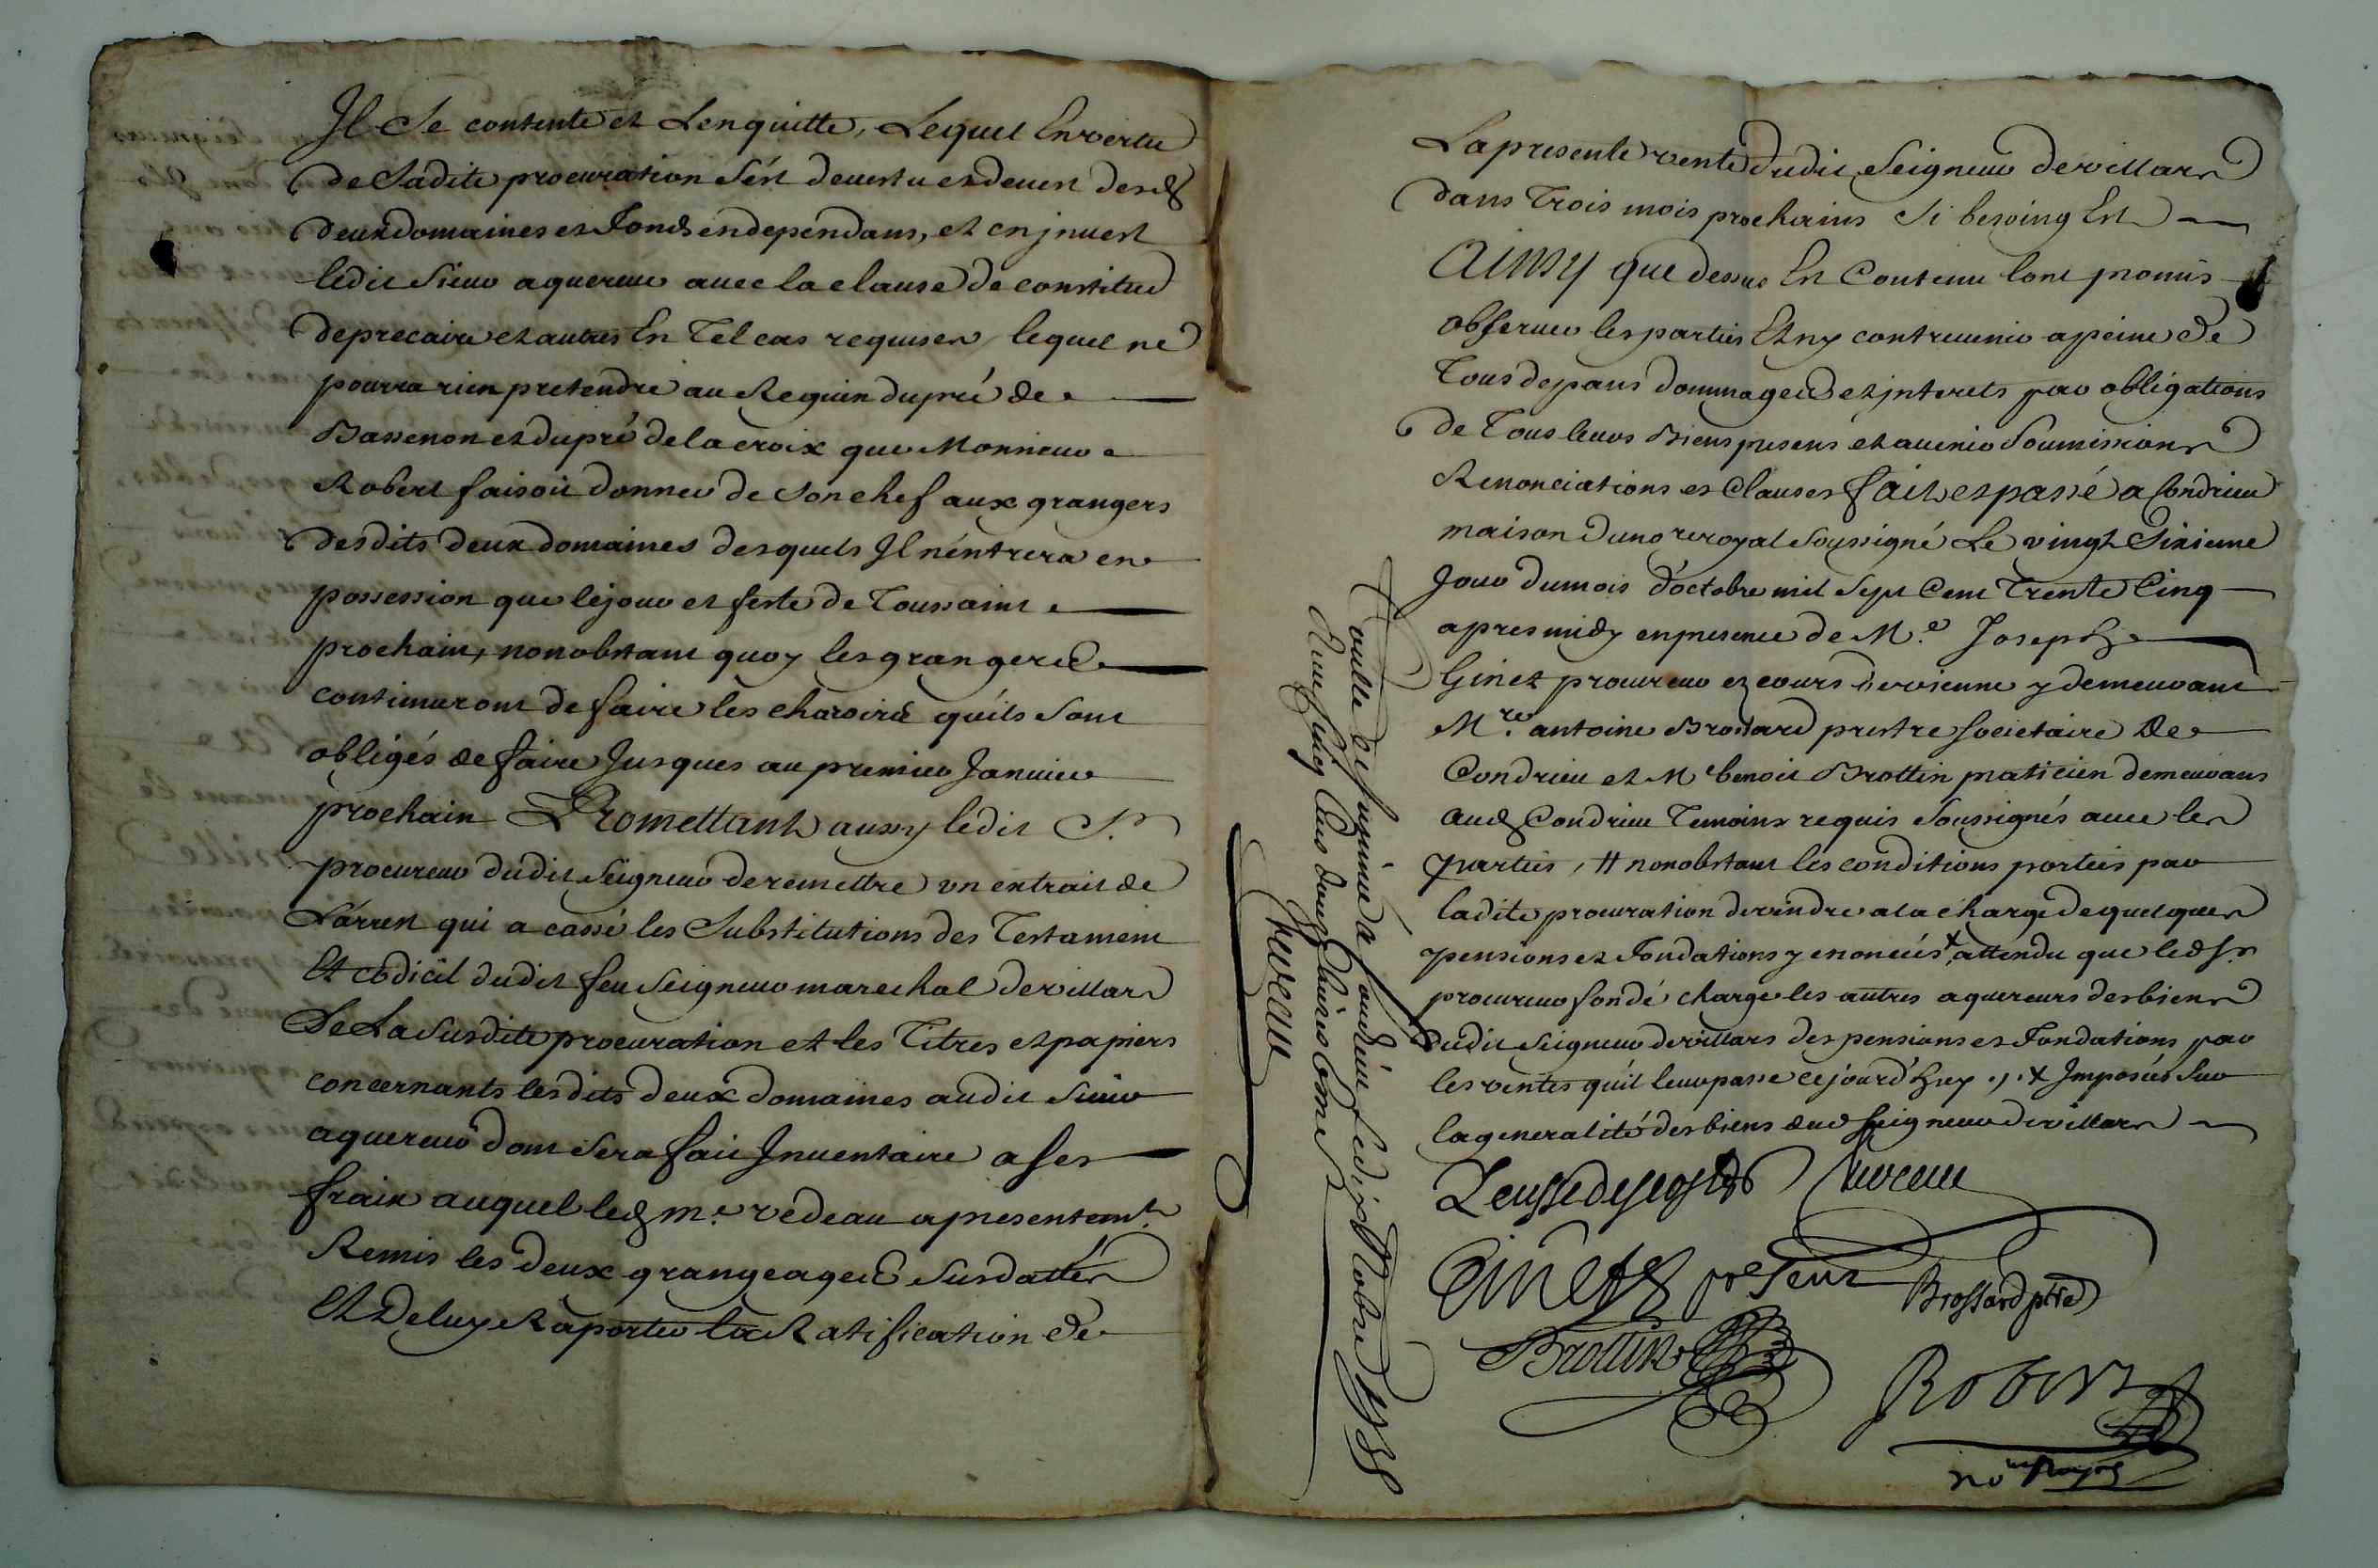 Il Se contente et Lenquitte, Lequel En vertu
de Sadite procuration S'est devestu et devest desd
deux domaines et Fonds en dependans, et en jnvest
ledit Sieur aquereur avec la clause de constitud
de precaire et autres En Tel cas requises, lequel ne
pourra rien pretendre au Reguin du pré de
Bassenon et du pré de la croix que Monsieur
Robert faisoit donner de son chef aux grangers
desdits deux domaines desquels Il n'entrera en
possession que le jour et feste de Toussaint
prochain, nonobstant quoy les grangers
continueront de faire les charoirs qu'ils sont
obligés de faire Jusques au premier Janvier
prochain Promettant aussy ledit Sr
procureur dudit Seigneur de remettre un extrait de
L'arrest qui a cassé les Substitutions des Testament
Et codicil dudit feu Seigneur marechal de villars
De La Susdite procuration et les Titres et papiers
concernants lesdits deux domaines audit Sieur
aquereur dont Sera fait Inventaire a ses
fraix auquel led me. vedeau a presentemt
Remis les deux grangeages Susdattés
Et De luy Raporter la Ratification de
La presente vente dudit Seigneur de villars
dans Trois mois prochains Si besoing Est
Ainsy que dessus Est Contenu l'ont promis
observer les parties Et ny contrevenir a peine de
Tous depans dommages et jnterets par obligations
de Tous leurs Biens presens et avenir Soumissions
Renonciations et Clauses fait et passé a Condrieu
maison du nore royal Soussigné Le vingt Sixieme
Jour du mois d'octobre mil Sept Cent Trente Cinq
apres midy en presence de M.e Joseph
Ginet procureur ez cours de vienne y demeurant
M.re antoine Brossard prestre societaire de
Condrieu et Me benoit Brottin praticien demeurans
aud Condrieu Temoins requis Soussignés avec les
parties, # nonobstant les conditions portées par
ladite procuration de vendre a la charge de quelques
pensions et Fondations y enoncées + attendu que led sr
procureur fondé charge les autres aquereurs des biens
dudit Seigneur de villars des pensions et Fondations par
les ventes qu'il leur passe ce jourd'huy ./. + Imposées Sur
la generalité des biens dud Seigneur de villars
Ginet present Brossard ptre
Brottin
Robert
no royal